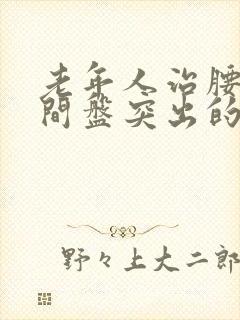 老年人治腰
間盤突出的
野々上大二郎